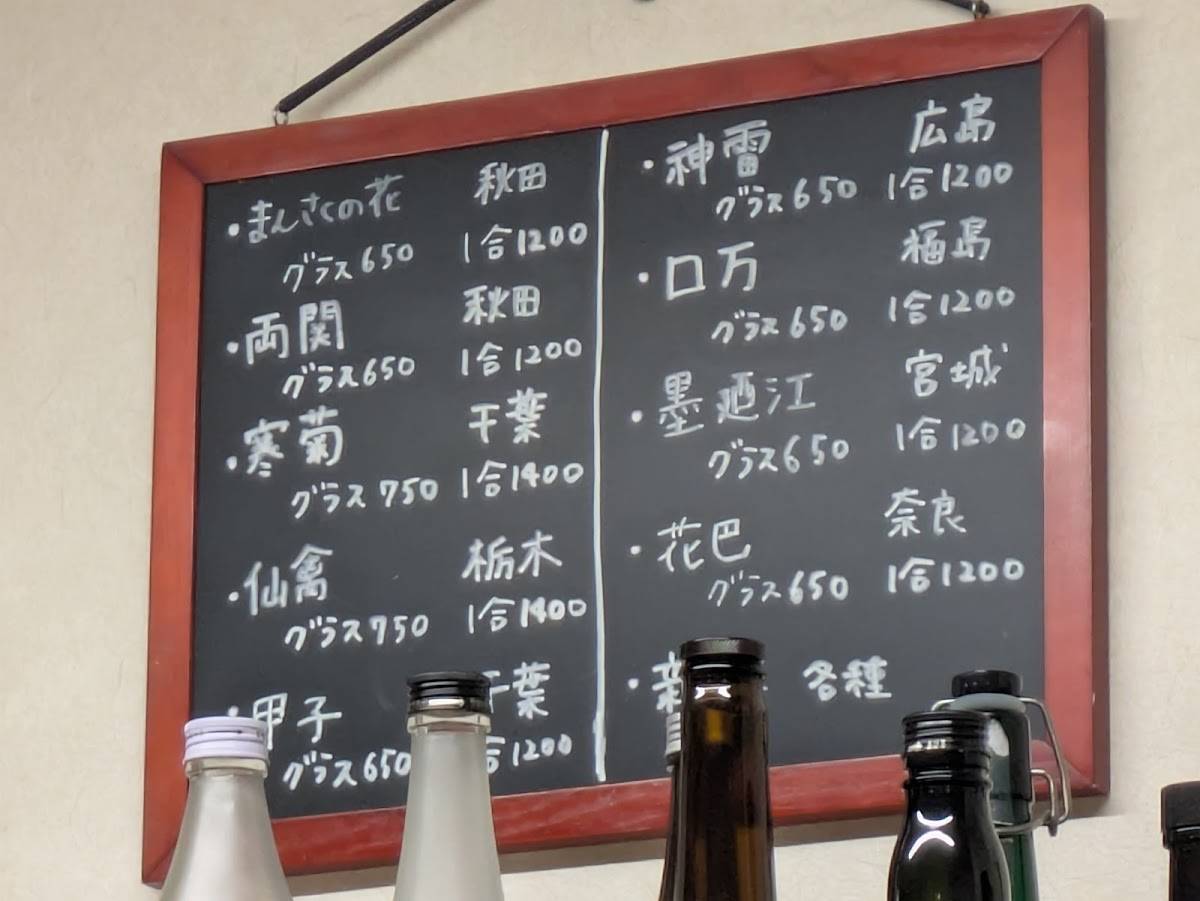 ・まんさくの花 秋田
グラス650 1合1200
・両関 秋田
グラス650 1合1200
・寒菊 千葉
グラス750 1合1400
・仙禽 栃木
グラス750 1合1400
・甲子 千葉
グラス650 合1200
・神雷 広島
グラス650 1合1200
・ロ万 福島
グラス650 1合1200
・墨廼江 宮城
グラス650 1合1200
・花巴 奈良
グラス650 1合1200
・ 各種